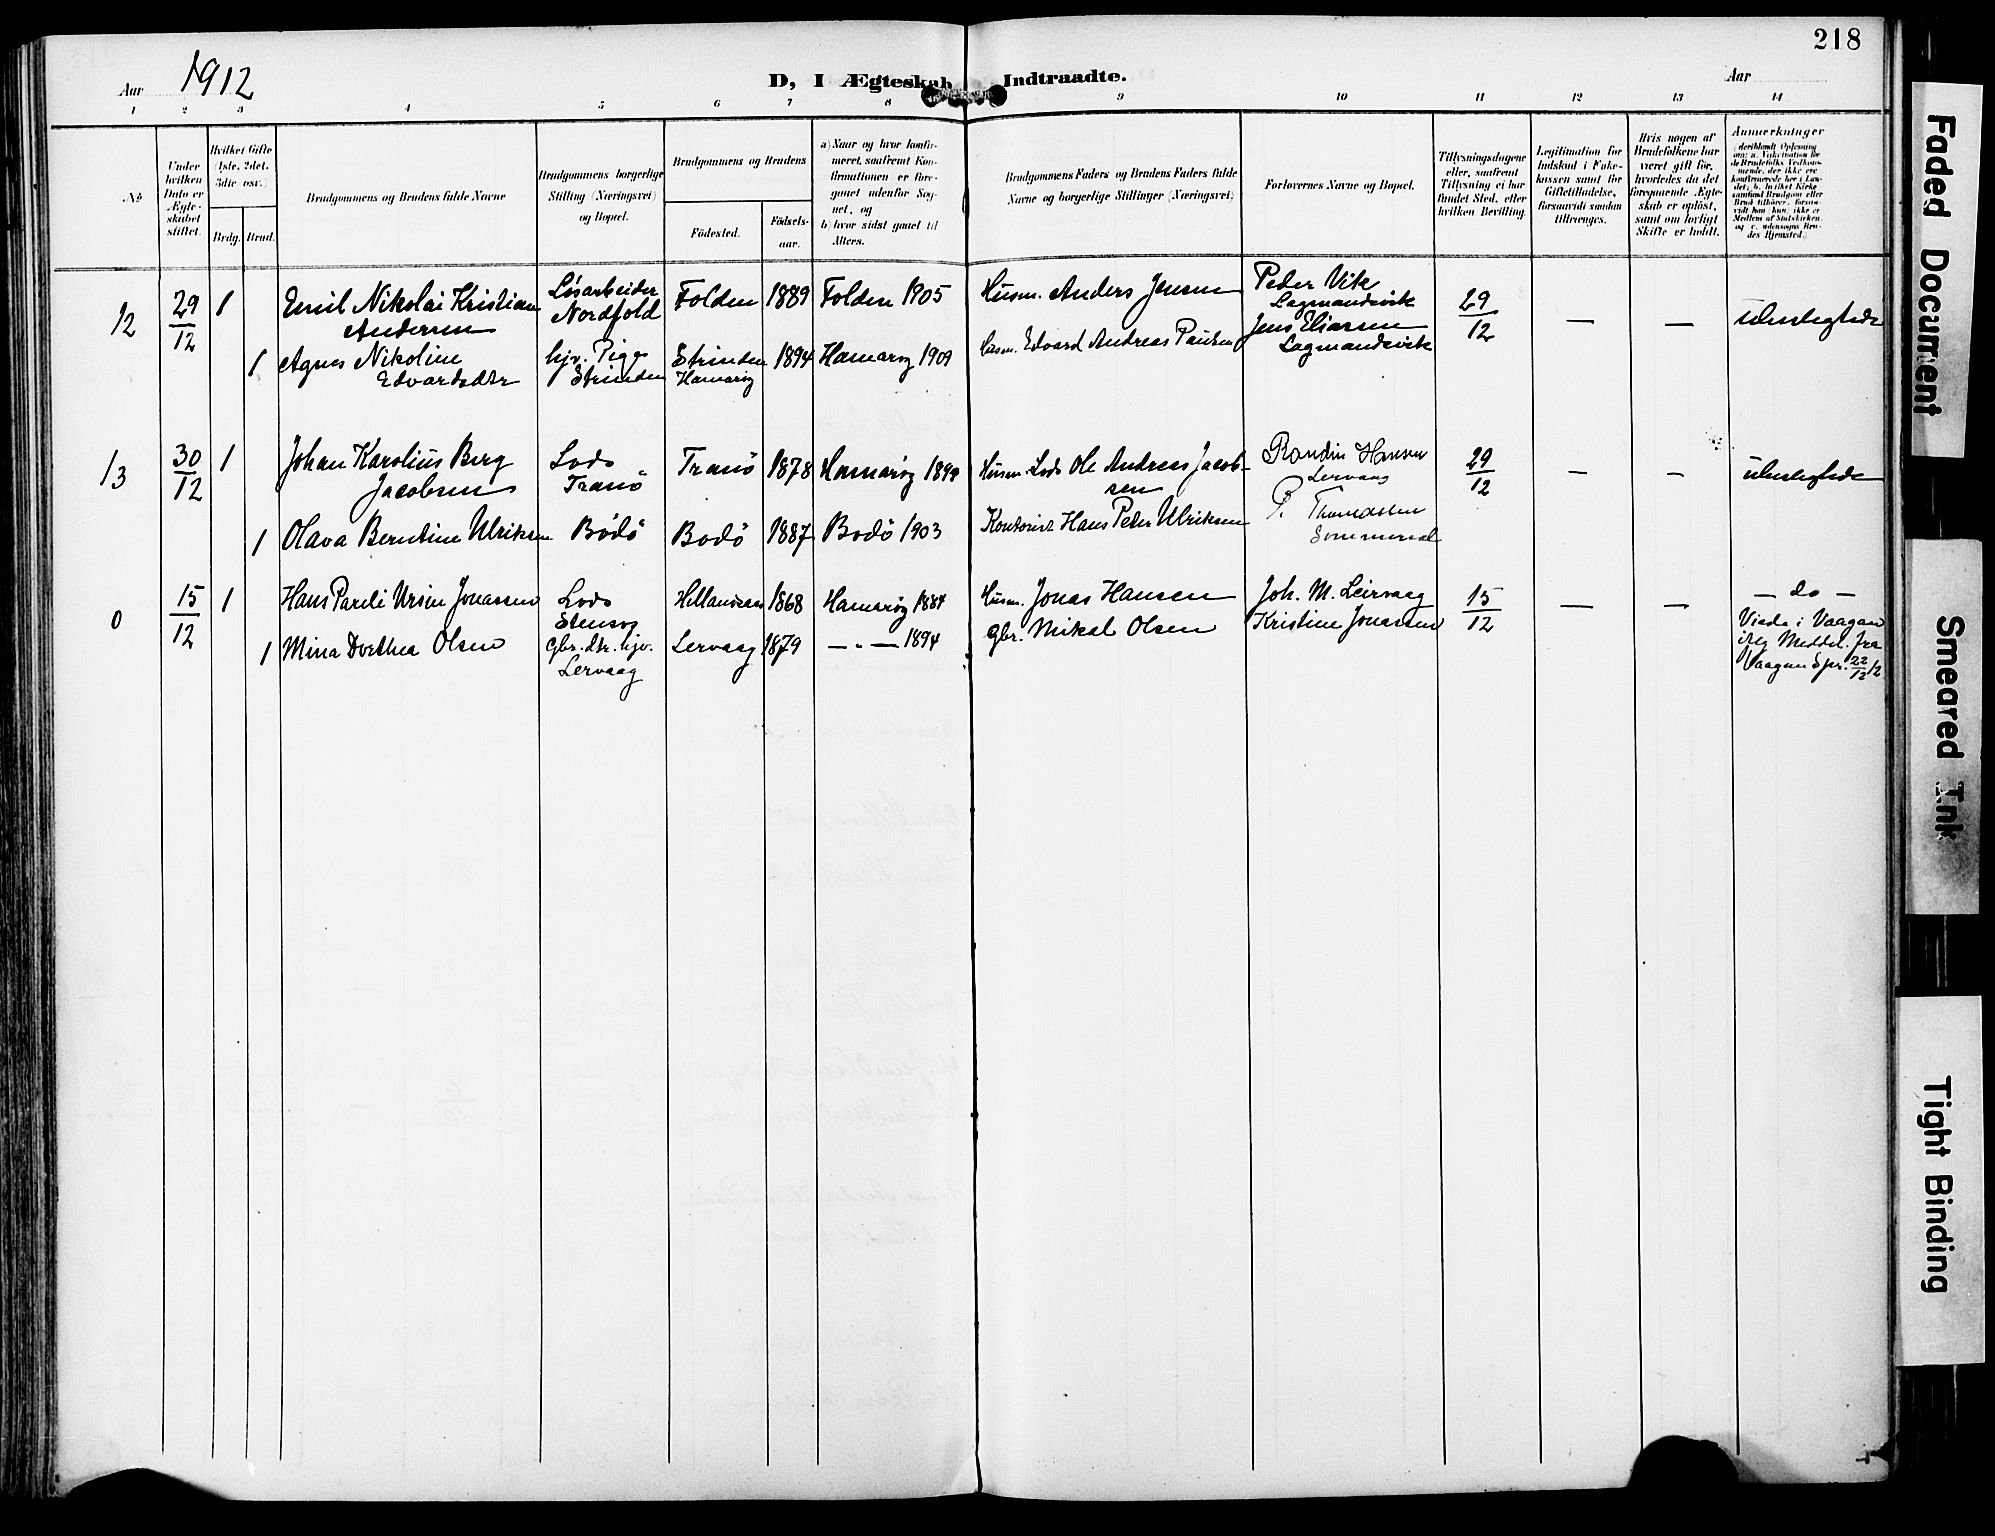 218
Aar 1912
D, I Ægteskab Indtraadte.
Aar
1 2 3 4 5 6 7 8 9 10 11 12 13 14
No
Under hvilken Dato er Ægteskabet stiftet.
Hvilket Gifte (1ste, 2det, 3die osv.)
Brdg. Brud.
Brudgommens og Brudens fulde Navne
Brudgommens borgerlige Stilling (Næringsvei) og Bopæl.
Brudgommens og Brudens
Födested.
Födsels-aar.
a) Naar og hvor konfirmeret, saafremt Konfirmationen er foregaaet udenfor Sognet, og
b) hvor sidst gaaet til Alters.
Brudgommens Faders og Brudens Faders fulde Navne og borgerlige Stillinger (Næringsvei)
Forlovernes Navne og Bopæl.
Tillysningsdagene eller, saafremt Tillysning ei har fundet Sted, efter hvilken Bevilling.
Legitimation for Indskud i Enkekassen samt for Giftetilladelse, forsaavidt saadan tiltrænges.
Hvis nogen af Brudefolkene har været gift för, hvorledes da det foregaaende Ægteskab er oplöst, samt om lovligt Skifte er holdt.
Anmerkninger
12 29/12 1 Emil Nikolai Kristian Løsarbeider Folden 1889 Folden 1905 Husm. Anders Jensen Peder Vik 29/12 — — ubeslegtede
Andersen Nordfold Lagmandsvik
1 Agnes Nikoline hjv. Pige Strinden 1894 Hamarøy 1909 Husm. Edvard Andreas Paulsen Jens Eliassen
Edvardsdtr Strinden Hamarøy Lagmandsvik
13 30/12 1 Johan Karolius Berg Lods Tranö 1878 Hamarøy 1892 Husm. Lods Ole Andreas Jacob- Hansen 29/12 — — ubeslegtede
Jacobsen Tranö sen Lervaag
1 Olava Berntine Ulriksen Bödö Bodö 1887 Bodö 1903 Kontorist Hans Peter Ulriksen P. Thomassen
0 15/12 1 Hans Pareli Ursin Jonassen Lods 1868 Hamarøy 1884 Husm. Jonas Hansen Joh. M. Leirvaag 15/12 — — — do —
1 Mina Dorthea Olsen Gbr. dtr. hjv. Lervaag 1879 — " — 1894 Gbr. Mikal Olsen Kristine Jonassen Viede i Vaagan
Lervaag iflg Meddel. fra
Vaagan Spr. 22/12 12
Faded Document
Smeared Ink
Tight Binding